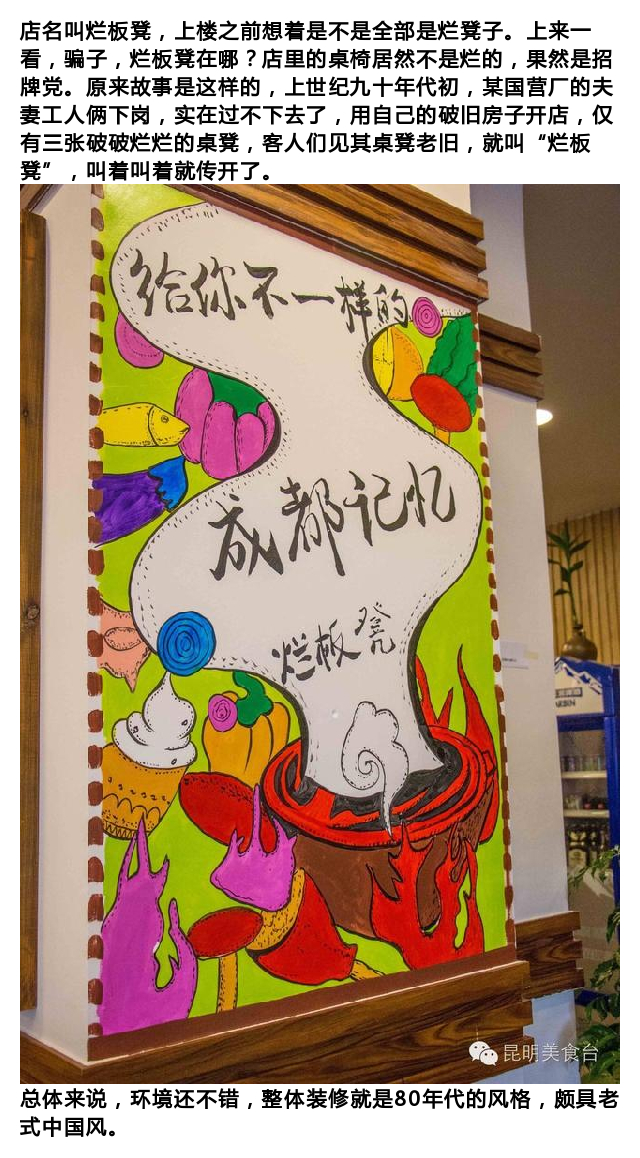 店名叫烂板凳，上楼之前想着是不是全部是烂凳子。上来一
看，骗子，烂板凳在哪？店里的桌椅居然不是烂的，果然是招
牌党。原来故事是这样的，上世纪九十年代初，某国营厂的夫
妻工人俩下岗，实在过不下去了，用自己的破旧房子开店，仅
有三张破破烂烂的桌凳，客人们见其桌凳老旧，就叫“烂板
凳”，叫着叫着就传开了。
给你不一样的
成都记忆
烂板凳
昆明美食台
总体来说，环境还不错，整体装修就是80年代的风格，颇具老
式中国风。